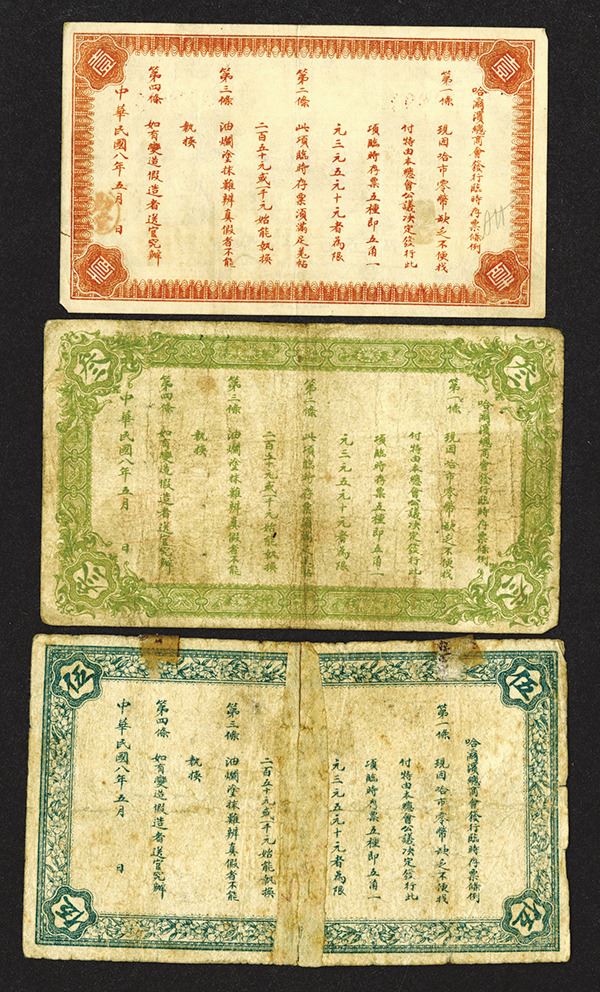 壹
壹
壹
壹
哈爾濱總商會發行臨時存票條例
第一條 現因哈市零幣缺乏不便找
付特由本總會公議決定發行此
項臨時存票五種即五角一
元三元五元十元者為限
第二條 此項臨時存票須滿足羌帖
二百五十元或一千元始能執換
第三條 油爛塗抹難辨真假者不能
執換
第四條 如有變造假造者送官究辦
中華民國八年五月 日
叁
叁
叁
叁
哈爾濱總商會發行臨時存票條例
第一條 現因哈市零幣缺乏不便找
付特由本總會公議決定發行此
項臨時存票五種即五角一
元三元五元十元者為限
第二條 此項臨時存票
二百五十元或一千元始能執換
第三條 油爛塗抹難辨真假者不能
執換
第四條 如有變造假造者送官究辦
中華民國八年五月 日
伍
伍
伍
伍
哈爾濱總商會發行臨時存票條例
第一條 現因哈市零幣缺乏不便找
付特由本總會公議決定發行此
項臨時存票五種即五角一
元三元五元十元者為限
二百五十元或一千元始能執換
第三條 油爛塗抹難辨真假者不能
執換
第四條 如有變造假造者送官究辦
中華民國八年五月 日